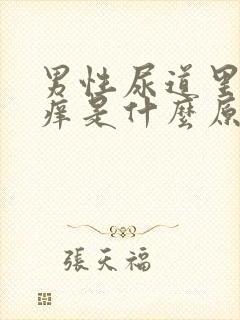 男性尿道里
痒是什麼原
張天福